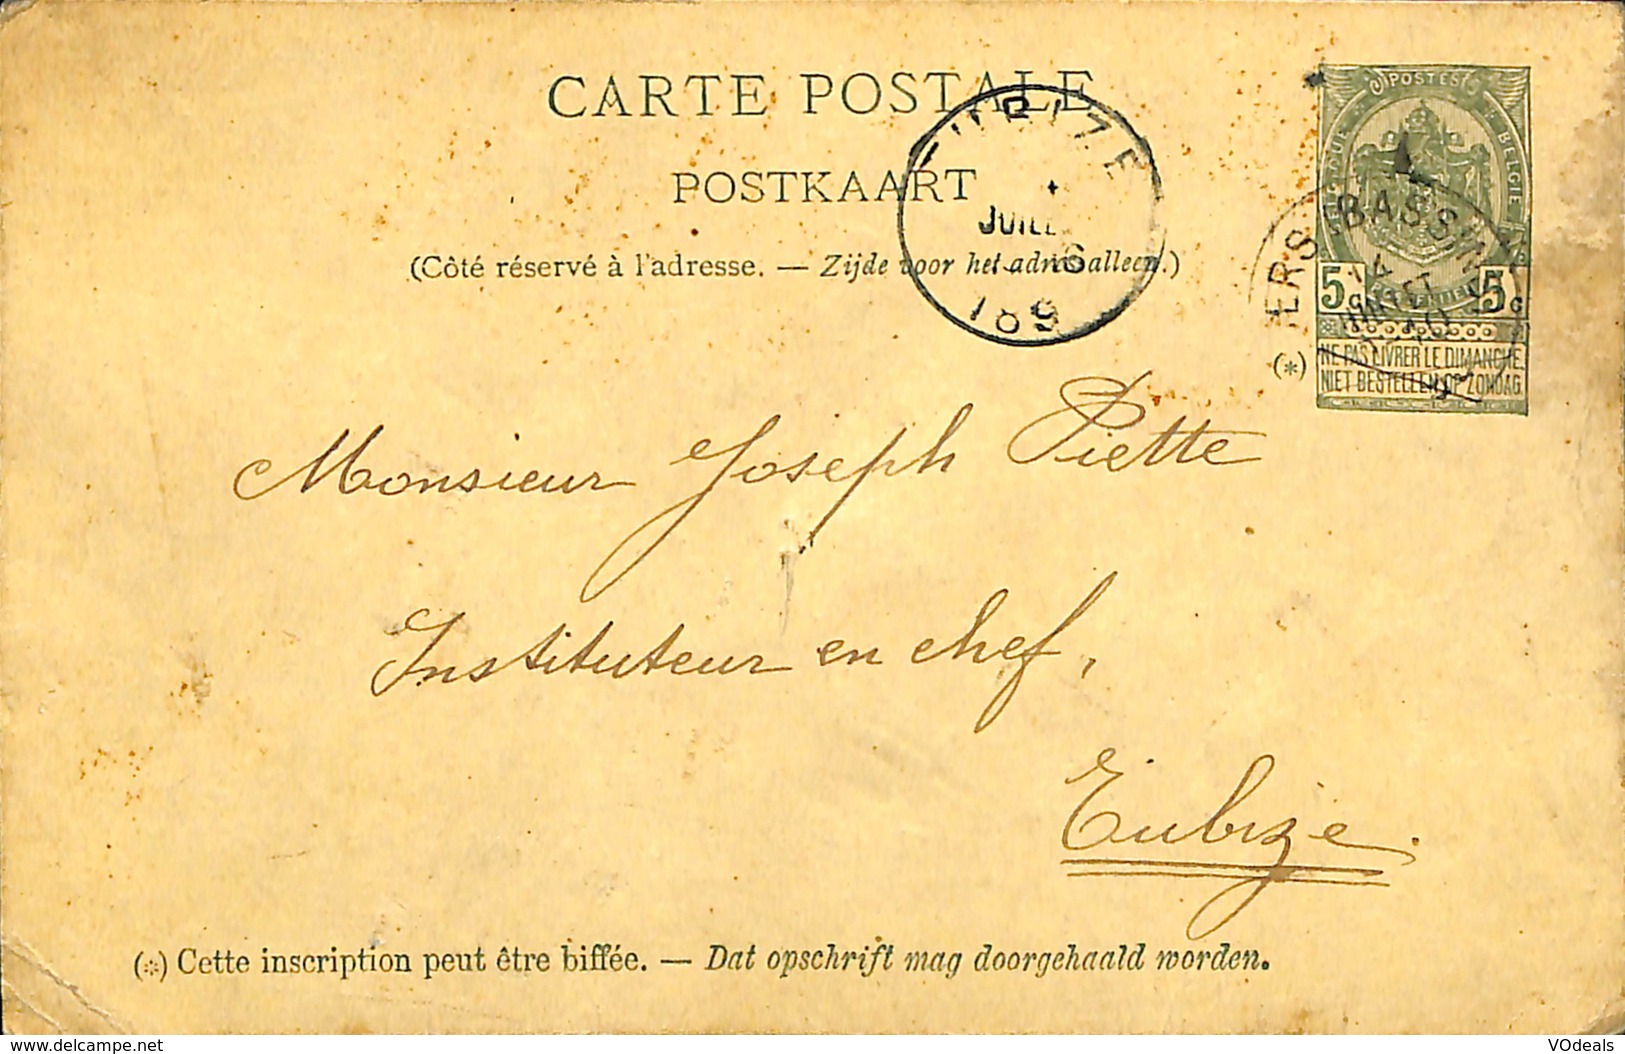 CARTE POSTALE
POSTKAART
(Côté réservé à l'adresse. — Zijde voor het adres alleen.)
POSTES
BELGIQUE BELGIE
5 C 5 C
NE PAS LIVRER LE DIMANCHE
NIET BESTELLEN OP ZONDAG
(*)
BASSIN
JUIL
189
Monsieur Joseph Piette
Instituteur en chef,
Eubize.
(*) Cette inscription peut être biffée. — Dat opschrift mag doorgehaald worden.
www.delcampe.net
VOdeals